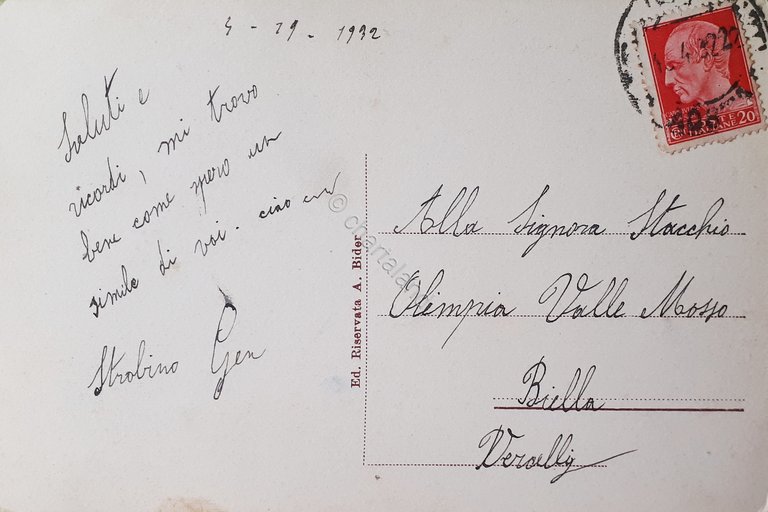 4 - 19 - 1932
Saluti e
ricordi, mi trovo
bene come spero un
simile di voi. ciao
Strobino Gen
Ed. Riservata A. Bider
Alla Signora Stacchio
Olimpia Valle Mosso
Biella
Vercelly
POSTE
ITALIANE 20
© chartala